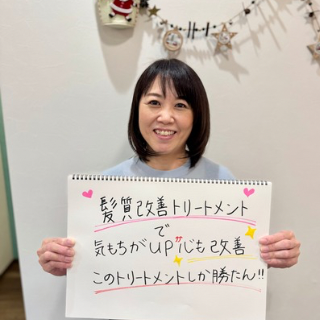 髪質改善トリートメント
で
気もちがup〃心も改善
このトリートメントしか勝たん!!